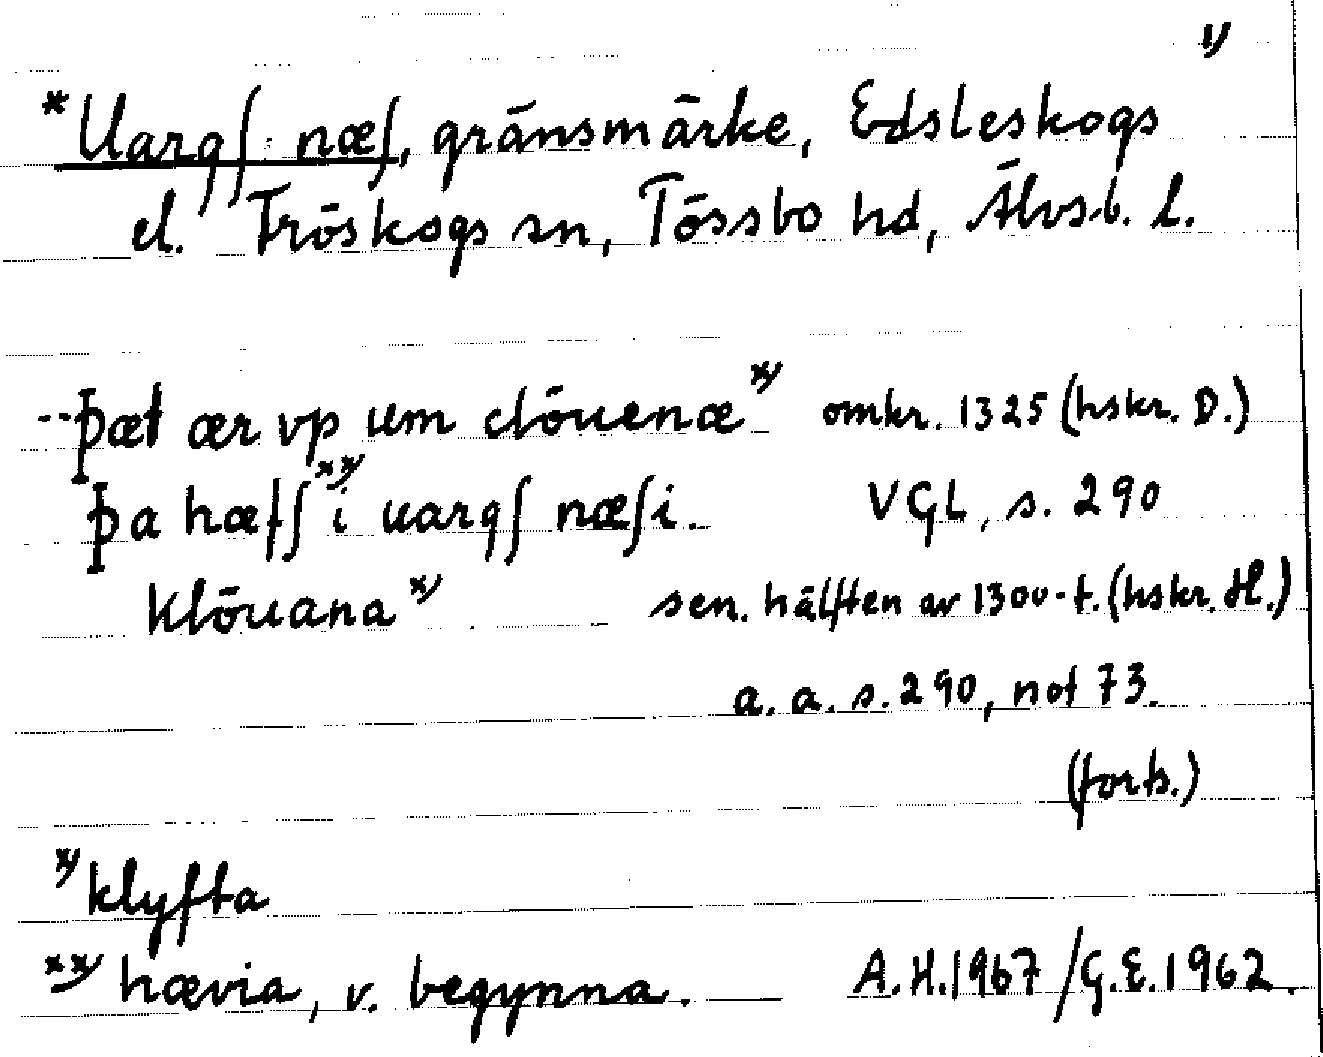 1)
*Uargſ næſ, gränsmärke, Edsleskogs
el. Tröskogs sn, Tössbo hd, Älvsb. l.
--þæt ær vp um clöuenæ x) omkr. 1325 (hskr. D.)
þa hæfſ xx) i uargſ næſi. VGL, s. 290
Klöuana x) sen. hälften av 1300-t. (hskr. H.)
a. a. s. 290, not 73.
(forts.)
x) klyfta
xx) hævia, v. begynna. — A.H.1967/G.E.1962.